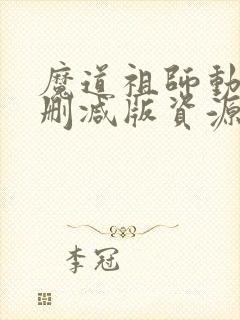 魔道祖師動
刪減版資源
李冠